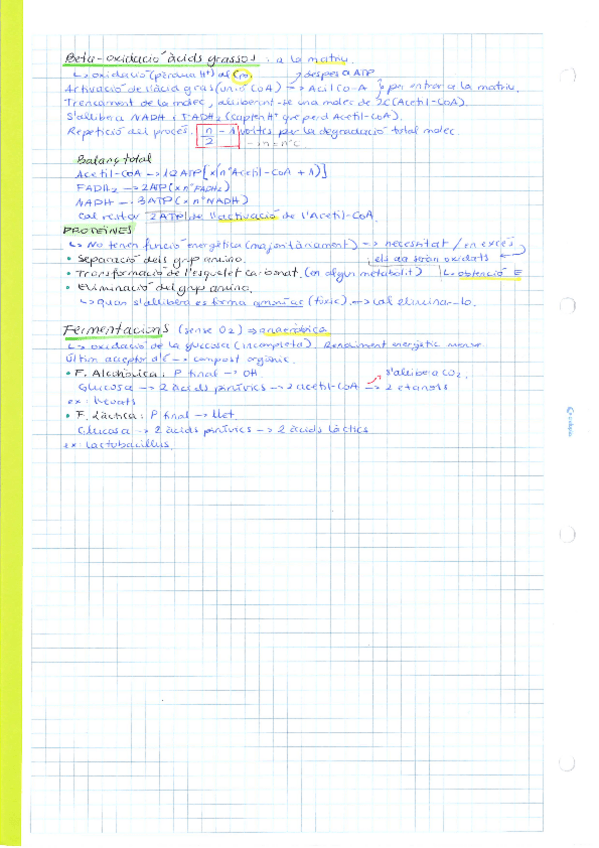 Beta-oxidació àcids grassos : a la matriu.
↳ oxidació (pèrdua H⁺) al Cβ. → despesa ATP
Activació de l'àcid gras (unió CoA) → Acil Co-A } per entrar a la matriu.
Trencament de la molec, alliberant-se una molec de 2C (Acetil-CoA).
S'allibera NADH i FADH₂ (capten H⁺ que perd Acetil-CoA).
Repetició del procés. n/2 - 1 voltes per la degradació total molec.
- n = nºC
Balanç total
Acetil-CoA → 12 ATP [x (nº Acetil-CoA + 1)]
FADH₂ → 2ATP (x nº FADH₂)
NADH → 3ATP (x nº NADH)
Cal restar 2 ATP de l'activació de l'Acetil-CoA.
PROTEÏNES
↳ No tenen funció energètica (majoritàriament) → necessitat / en excés
• Separació dels grup amino. els aa seran oxidats
• Transformació de l'esquelet carbonat. (en algun metabolit) ↳ obtenció E
• Eliminació del grup amino.
↳ quan s'allibera es forma amoníac (tòxic). → cal eliminar-lo.
Fermentacions (sense O₂) ⇒ anaeròbica
↳ oxidació de la glucosa (incompleta). Rendiment energètic menor.
Últim acceptor d'é → compost orgànic.
• F. Alcohòlica: P final → OH s'allibera CO₂.
Glucosa → 2 àcids pirúvics → 2 acetil-CoA → 2 etanols
ex: llevats
• F. Làctica: P final → llet
Glucosa → 2 àcids pirúvics → 2 àcids làctics
ex: lactobacillus.